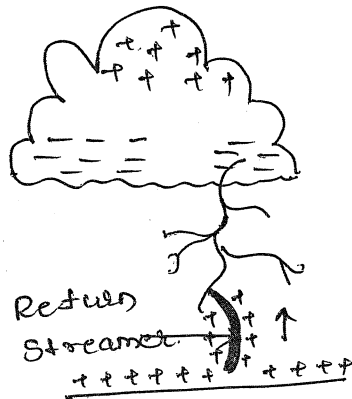 Return
Streamer.